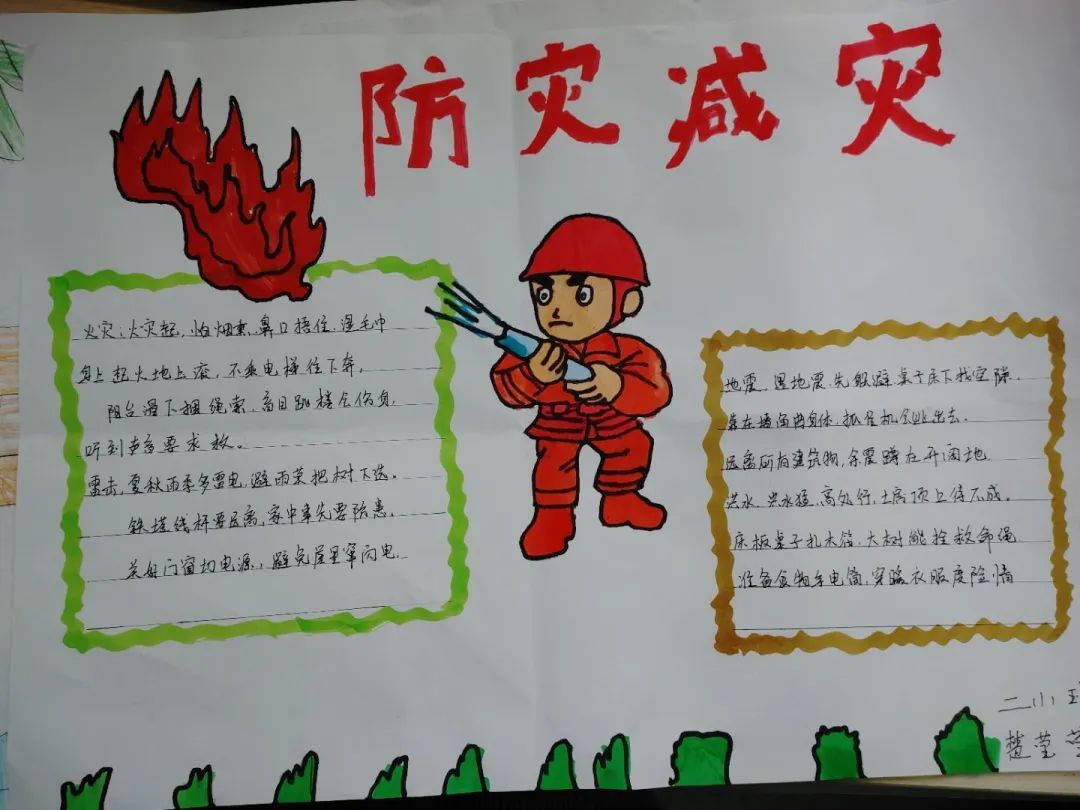 防灾减灾
火灾：火灾起，怕烟熏，鼻口捂住，湿毛巾
身上起火地上滚，不乘电梯往下奔，
阳台滑下捆绳索，盲目跳楼会伤身，
听到声音要求救。
雷击，夏秋雨季多雷电，避雨莫把树下选。
铁塔线杆要远离，家中事先要防患，
关好门窗切电源，避免屋里窜闪电
地震，遇地震，先躲避，桌子床下找空隙，
靠在墙角曲身体，抓住机会逃出去，
远离所有建筑物，余震蹲在开阔地
洪水，洪水猛，高处行，土房顶上待不成。
床板桌子扎木筏，大树能拴救命绳
准备食物手电筒，穿暖衣服度险情
二小
楚莹